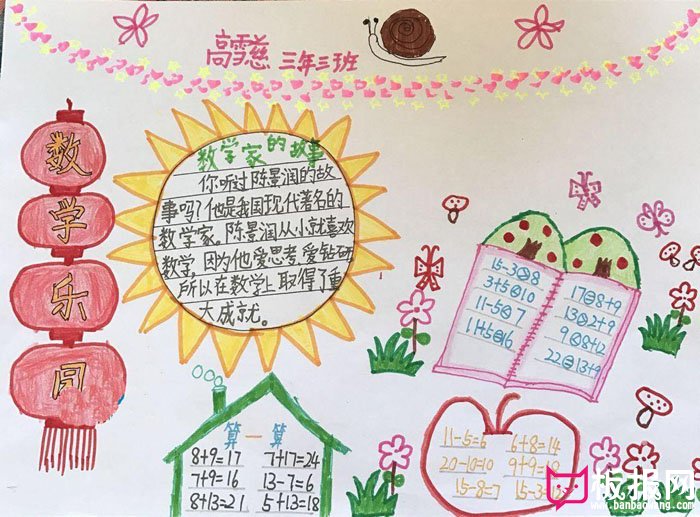 高雪慈 三年三班
数
学
乐
园
数学家的故事
你听过陈景润的故
事吗?他是我国现代著名的
数学家。陈景润从小就喜欢
数学。因为他爱思考,爱钻研
所以在数学上取得了重
大成就。
15-3>8
3+5<10
11-5<7
11+5=16
17=8+9
13>2+9
9<8+12
22=13+9
算一算
8+9=17 7+17=24
7+9=16 13-7=6
8+13=21 5+13=18
11-5=6 6+8=14
20-10=10 9+9=18
15-8=7 15-3=
板报网
www.banbaowang.com